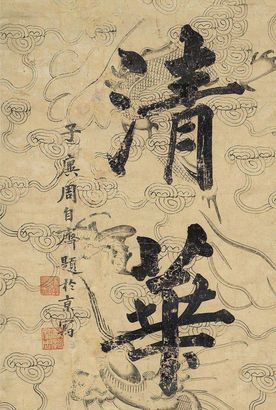 清華
子廙周自齊題於京師